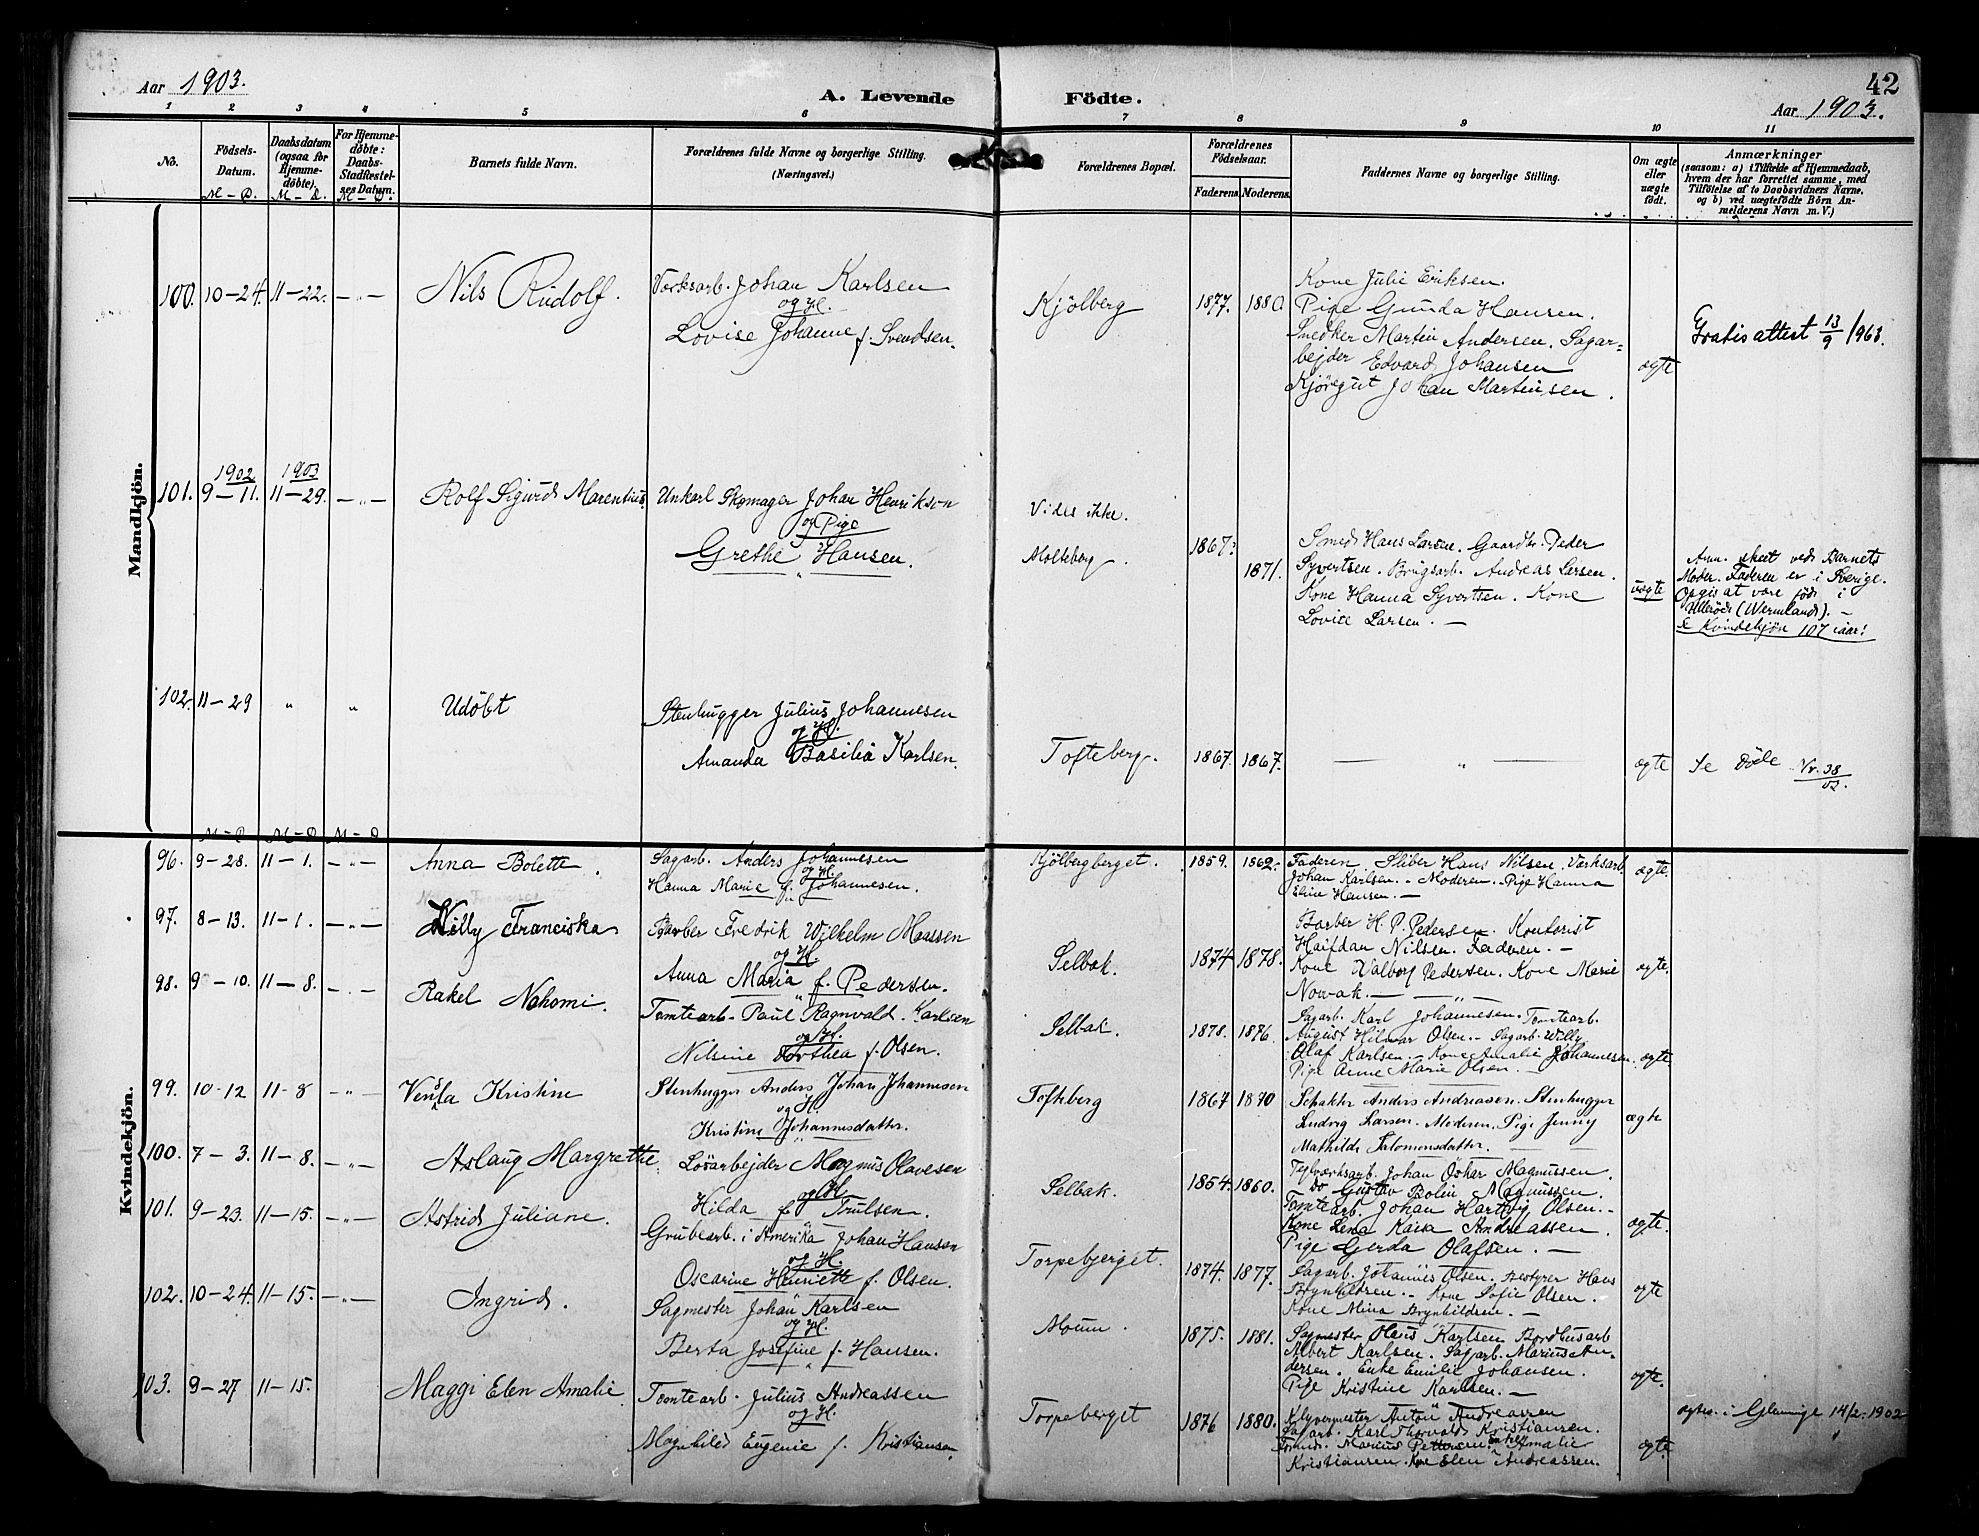 42
Aar 1903.
A. Levende Födte.
Aar 1903.
1 2 3 4 5 6 7 8 9 10 11
No.
Födsels-Datum. M – D.
Daabsdatum (ogsaa for Hjemme-döbte). M – D.
For Hjemme-döbte: Daabs-Stadfestel-ses Datum. M – D.
Barnets fulde Navn.
Forældrenes fulde Navne og borgerlige Stilling. (Næringsvei.)
Forældrenes Bopæl.
Forældrenes Födselsaar. Faderens. Moderens.
Faddernes Navne og borgerlige Stilling.
Om ægte eller uægte födt.
Anmærkninger (saasom: a) i Tilfelde af Hjemmedaab, hvem der har forrettet samme, med Tilföielse af to Daabsvidners Navne, og b) ved uægtefödte Börn An-melderens Navn m. V.)
Mandkjön.
100. 10–24. 11–22. – „ – Nils Rudolf.
Verksarb. Johan Karlsen
og H.
Lovise Johanne f. Svendsen.
Kjölberg 1877. 1880.
Kone Julie Eriksen.
Pige Gunda Hansen.
Snedker Martin Andersen. Sagar=
bejder Edvard Johansen
Kjöregut Johan Martinsen.
ægte
Gratis attest 13/9 1963.
1902 1903
101. 9–11. 11–29. – „ – Rolf Sigurd Marentius
Unkarl Skomager Johan Henrikson
og Pige
Grethe Hansen.
Vides ikke.
Molteberg. 1867. 1871.
Smed Hans Larsen. Gaardbr. Peder
Syvertsen. Brugsarb. Andreas Larsen.
Kone Hanna Syvertsen. Kone
Lovise Larsen. –
uægte
Anm. skeet ved Barnets
Moder. Faderen er i Sverige.
Opgis at være född i
(Wermland). –
Se Kvindekjön 107 iaar!
102. 11–29 „ „ Udöbt
Stenhugger Julius Johannesen
og H.
Amanda Basilia Karlsen.
Tofteberg. 1867. 1867. – „ – ægte
Se Döde Nr. 38/03.
M – D M – D M – D
Kvindekjön.
96. 9–28. 11–1. – „ – Anna Bolette.
Sagarb. Anders Johannesen
og H.
Hanna Marie f. Johannesen.
Kjölbergberget. 1859. 1862.
Faderen Sliber Hans Nilsen. Værksarb.
Johan Karlsen. – Moderen. – Pige Hanna
Eline Hansen. –
ægte.
97. 8–13. 11–1. – „ – Willy Franciska
Barber Fredrik Wilhelm Maassen
og H.
Anna Maria f. Pedersen.
Selbak. 1874 1878.
Barber H. P. Pedersen. Kontorist
Halfdan Nilsen. Faderen. –
Kone Valborg Pedersen. Kone Marie
Nowak. –
ægte.
98. 9–10. 11–8. – „ – Rakel Nahomi.
Tomtearb. Paul Ragnvald Karlsen
og H.
Nilsine Dorthea f. Olsen.
Selbak. 1878. 1876.
Sagarb. Karl Johannesen. Tomtearb.
August Hilmar Olsen. – Sagarb. Willy
Olaf Karlsen. – Kone Amalie Johannesen.
Pige Anne Marie Olsen. –
ægte.
99. 10–12 11–8 – „ – Vensla Kristine
Stenhugger Anders Johan Johannesen
og H.
Kristine Johannesdatter.
Tofteberg 1867 1870
Schakter Anders Andreasen. Stenhugger
Ludvig Larsen. Moderen. Pige Jenny
Mathilde Salomonsdatter.
ægte
100. 7–3. 11–8. – „ – Aslaug Margrethe
Lösarbejder Magnus Olavesen
og H.
Hilda f. Trulsen.
Selbak. 1854. 1860.
Teglværksarb. Johan Oskar Magnussen.
do Gustav Bolin Magnussen.
Tomtearb. Johan Hartvig Olsen. –
Kone Lena Kaisa Andreassen.
Pige Gerda Olafsen. –
ægte.
101. 9–23. 11–15. – „ – Astrid Juliane.
Grubearb. i Amerika Johan Hansen
og H.
Oscarine Henriette f. Olsen.
Torpebjerget. 1874. 1877.
Sagarb. Johannes Olsen. Bestyrer Hans
Brynhildsen. – Kone Sofie Olsen.
Kone Mina Brynhildsen. –
ægte
102. 10–24. 11–15. – „ – Ingrid.
Sagmester Johan Karlsen
og H.
Berta Josefine f. Hansen.
Moum. 1875. 1881.
Sagmester Olaus Karlsen Bordhusarb
Albert Karlsen. Sagarb. Marius An-
dersen. Enke Emilie Johansen.
Pige Kristine Karlsen. –
ægte.
103. 9–27 11–15. Maggi Elen Amalie
Tomtearb. Julius Andreassen
og H.
Magnhild Eugenie f. Kristiansen.
Torpeberget 1876 1880.
Klyvermester Anton Andreassen
Sagarb. Karl Thorvald Kristiansen.
Marius Pettersen Enke Amalie
Kristiansen. Kone Elen Andreassen.
ægte.
i Glemmige 14/2. 1902